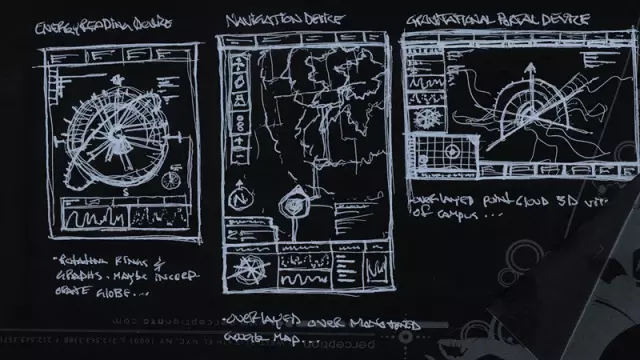 ENERGY READING DEVICE
NAVIGATION DEVICE
GRAVITATIONAL PORTAL DEVICE
N
S
N
- OVERLAYED POINT CLOUD 3D VIEW
OF CAMPUS...
- ROTATING RINGS &
GRAPHS. MAYBE INCORP-
ORATE GLOBE...
- OVERLAYED OVER MONOTONED
GOOGLE MAP...
perception